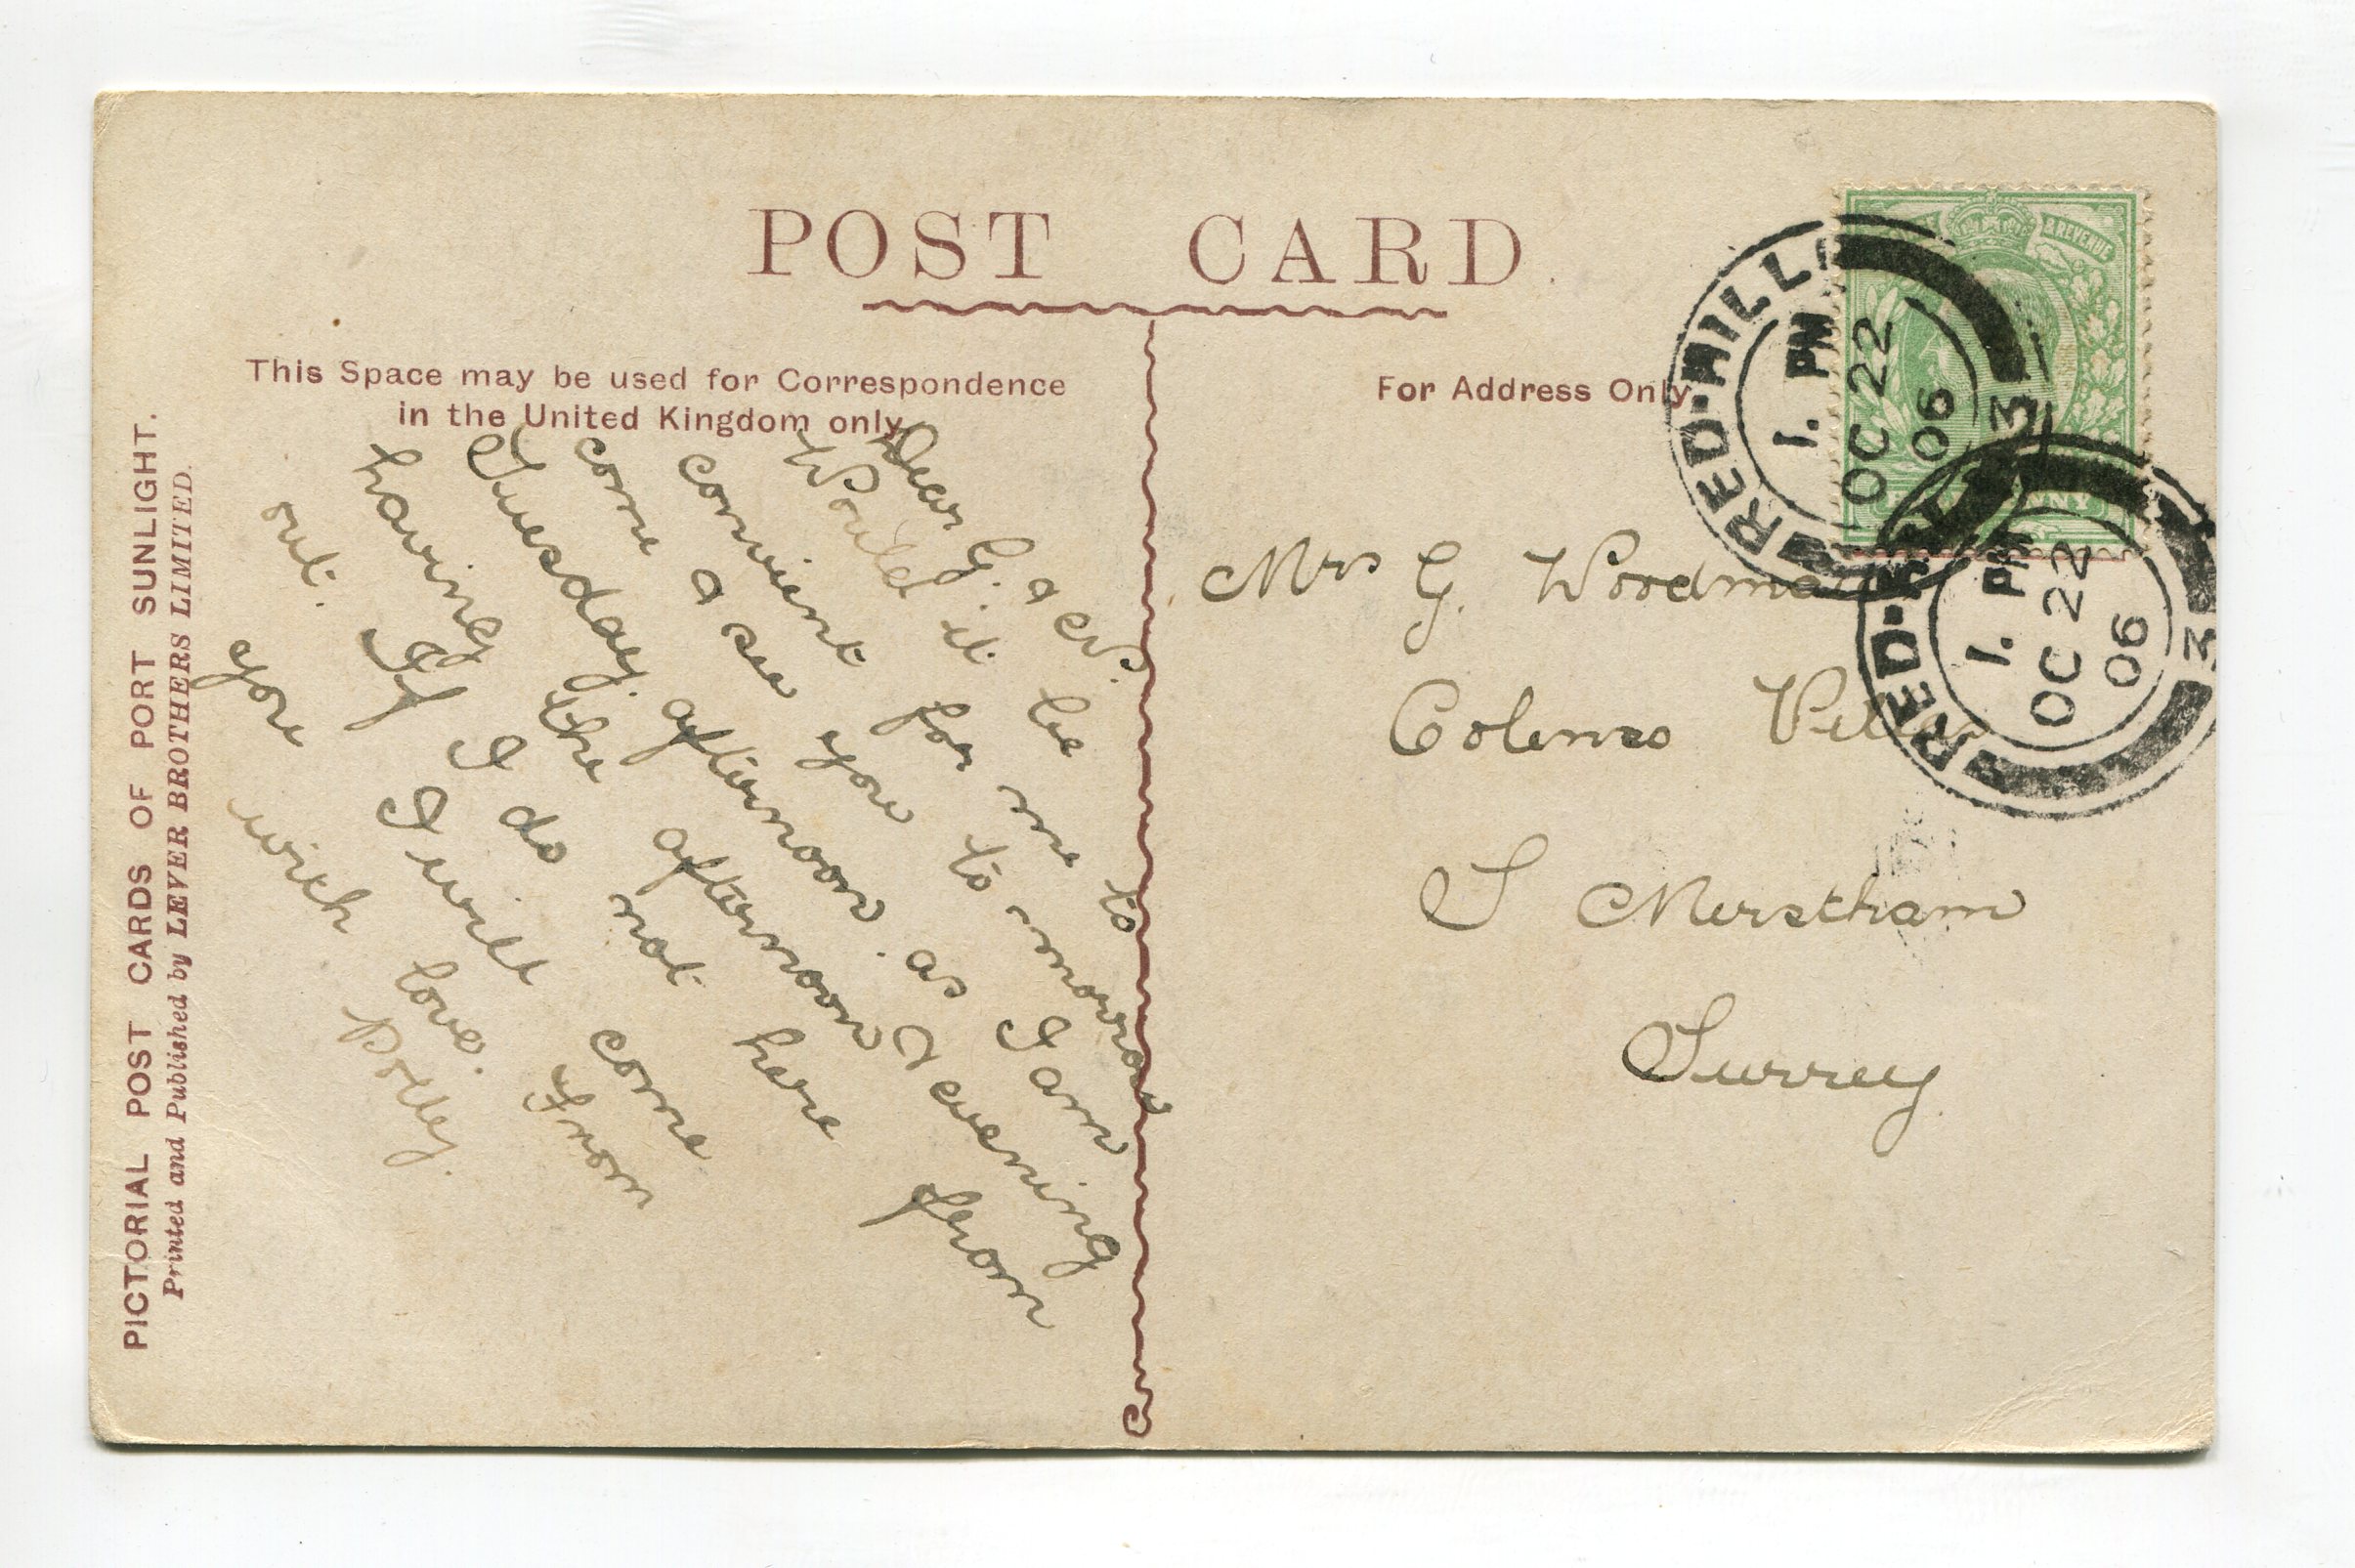 POST CARD
This Space may be used for Correspondence
in the United Kingdom only.
For Address Only.
PICTORIAL POST CARDS OF PORT SUNLIGHT.
Printed and Published by LEVER BROTHERS LIMITED.
Dear G. &
Would it be
convient for me to
come & see you to morrow
Tuesday. afternoon. as I am
having the afternoon & evening
out. If I do not here from
you I will come
with love. From
Polley.
Mrs G. Woodman
Colenso
S Merstham
Surrey
& REVENUE
RED-HILL
1. PM
OC 22
06
3
RED-
1. PM
OC 22
06
3